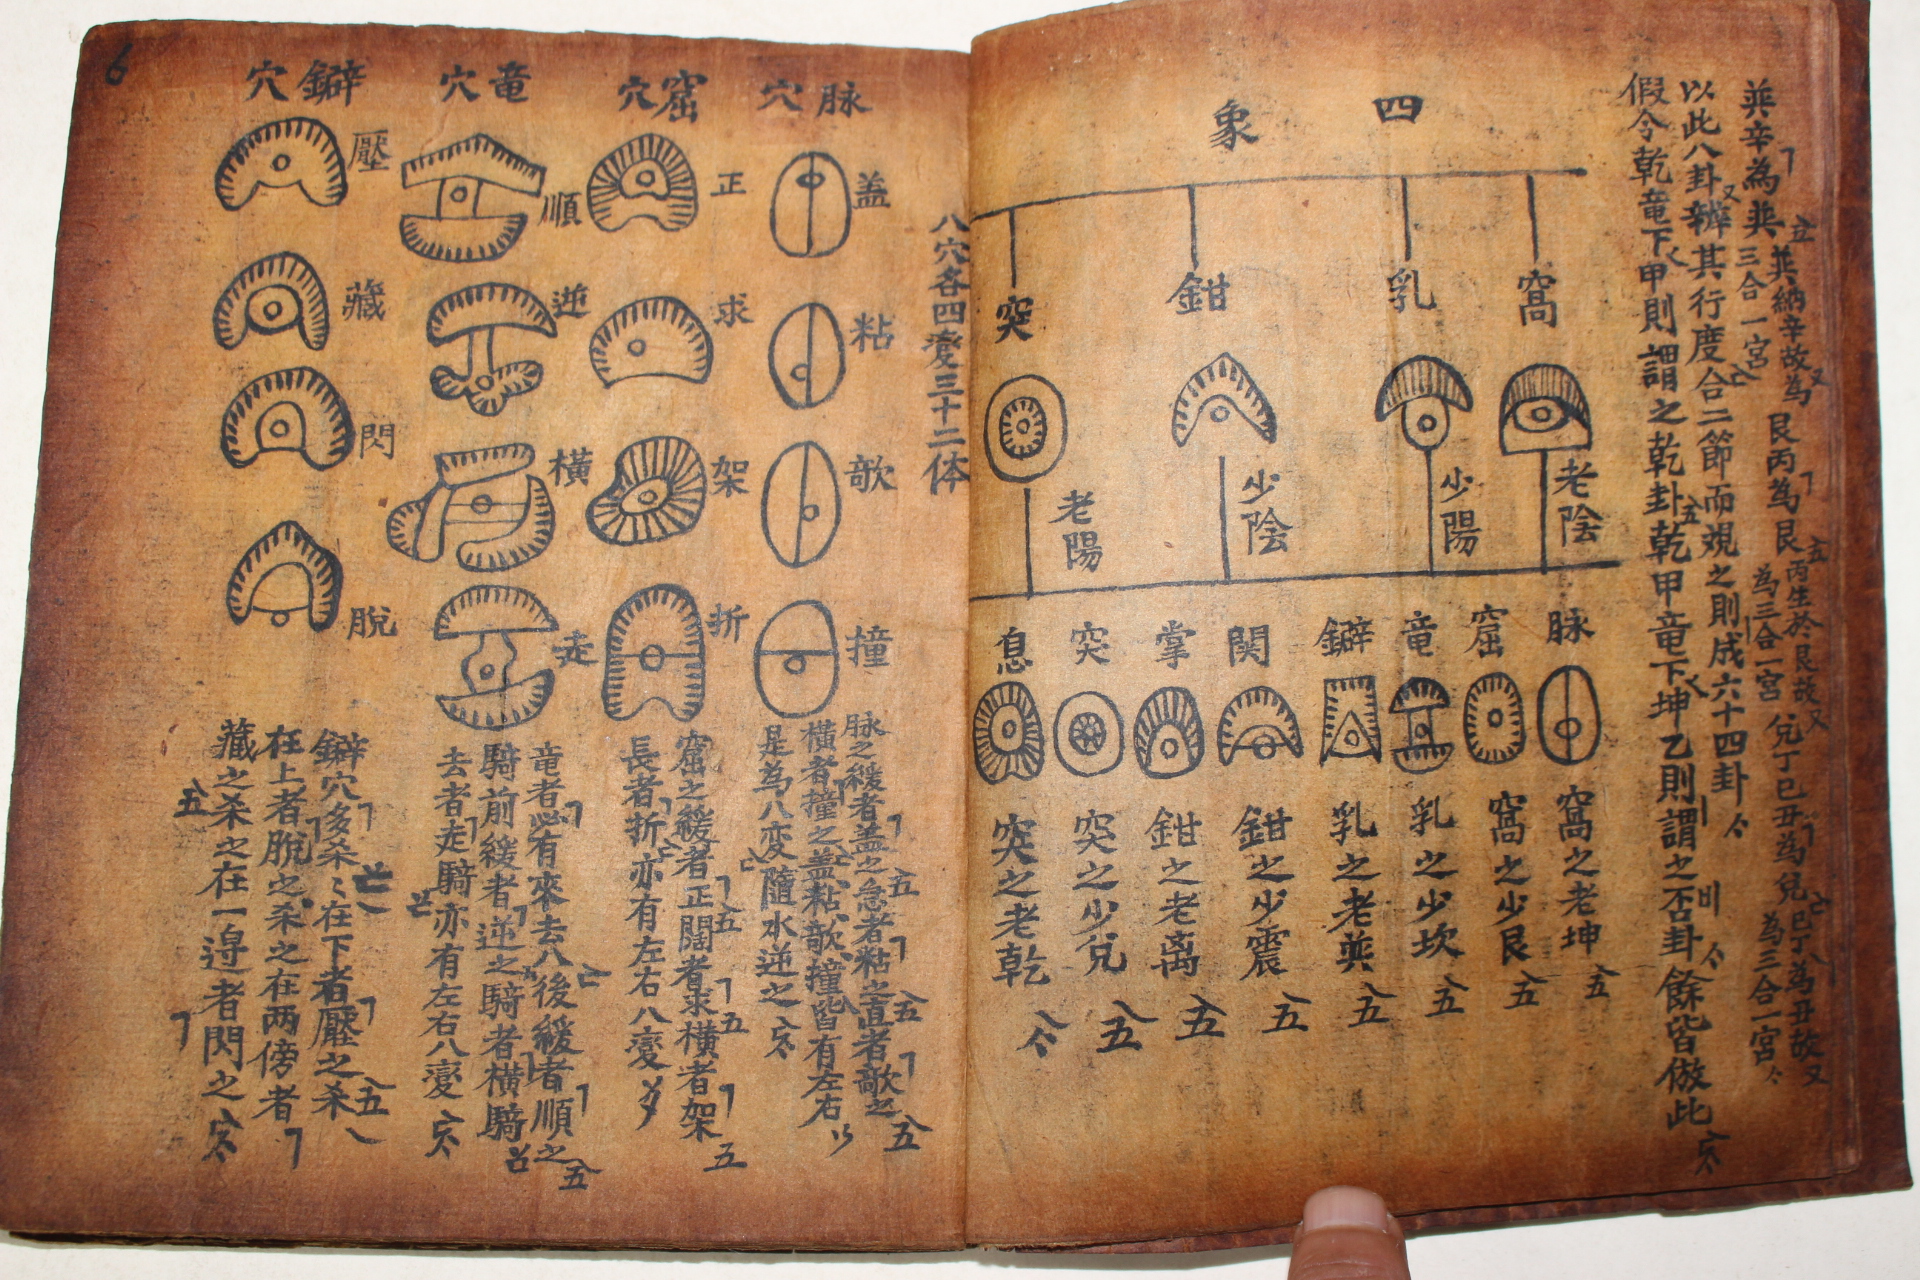 巽辛為巽
巽納辛故為
三合一宮
艮丙為艮
丙生於艮故
為三合一宮
兌丁巳丑為兌
巳丁為丑故
為三合一宮
以此八卦辨其行度合二節而規之則成六十四卦
假令乾竜下甲則謂之乾卦乾甲竜下坤乙則謂之否卦餘皆倣此
四象
窩
乳
鉗
突
老陰
少陽
少陰
老陽
脉
窟
竜
鐴
関
掌
突
息
窩之老坤
窩之少艮
乳之少坎
乳之老巽
鉗之少震
鉗之老离
突之少兌
突之老乾
八穴各四變三十二体
脉穴
盖
粘
歌
撞
脉之緩者盖之急者粘之直者歌之
橫者撞之盖粘歌撞皆有左右
是為八変隨水逆之
窟穴
正
求
架
折
窟之緩者正闊者求橫者架
長者折亦有左右八變
竜穴
順
逆
橫
走
竜者必有來去八後緩者順之
騎前緩者逆之騎者橫騎
去者走騎亦有左右八變
鐴穴
壓
藏
閃
脫
鐴穴多杀杀在下者壓之杀
在上者脫之杀之在兩傍者
藏之杀之在一邊者閃之
6